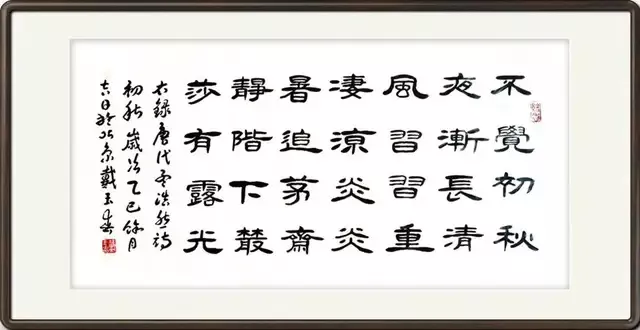 不覺初秋
夜漸長清
風習習重
淒涼炎炎
暑追茅齋
靜階下叢
莎有露光
右錄唐代孟浩然詩
初秋歲次乙巳餘月
吉日於北京戴玉